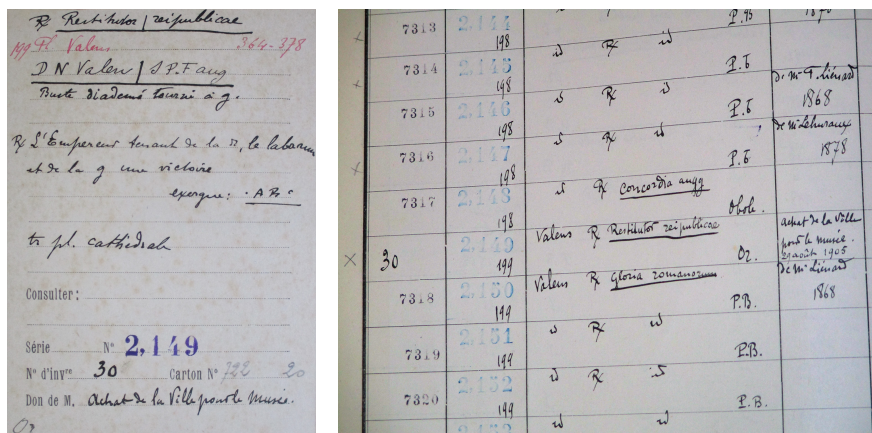 ℞ Restitutor / reipublicae
199 Fl Valens 364-378
D N Valen / S P.F aug
Buste diademé tourné à g.
℞ L'Empereur tenant de la d, le labarum
et de la g une victoire
exergue:
tr pl. cathédrale
Consulter:
Série N° 2,149
N° d'invre 30 Carton N° 722 20
Don de M. achat de la Ville pour le Musée.
Or
7313 2,144 198 P.B 1870
7314 2,145 198 id ℞ id P.B
7315 2,146 198 id ℞ id P.B de Mr F. Liénard 1868
7316 2,147 198 id ℞ id P.B de Mr Lehuraux 1878
7317 2,148 198 id ℞ Concordia augg Obole.
30 2,149 199 Valens ℞ Restitutor reipublicae Or. achat de la Ville pour le musée. 29 août 1905
7318 2,150 199 Valens ℞ Gloria romanorum P.B. de Mr Liénard 1868
7319 2,151 199 id ℞ id P.B.
7320 2,152 199 id ℞ id P.B.
2,153 id id